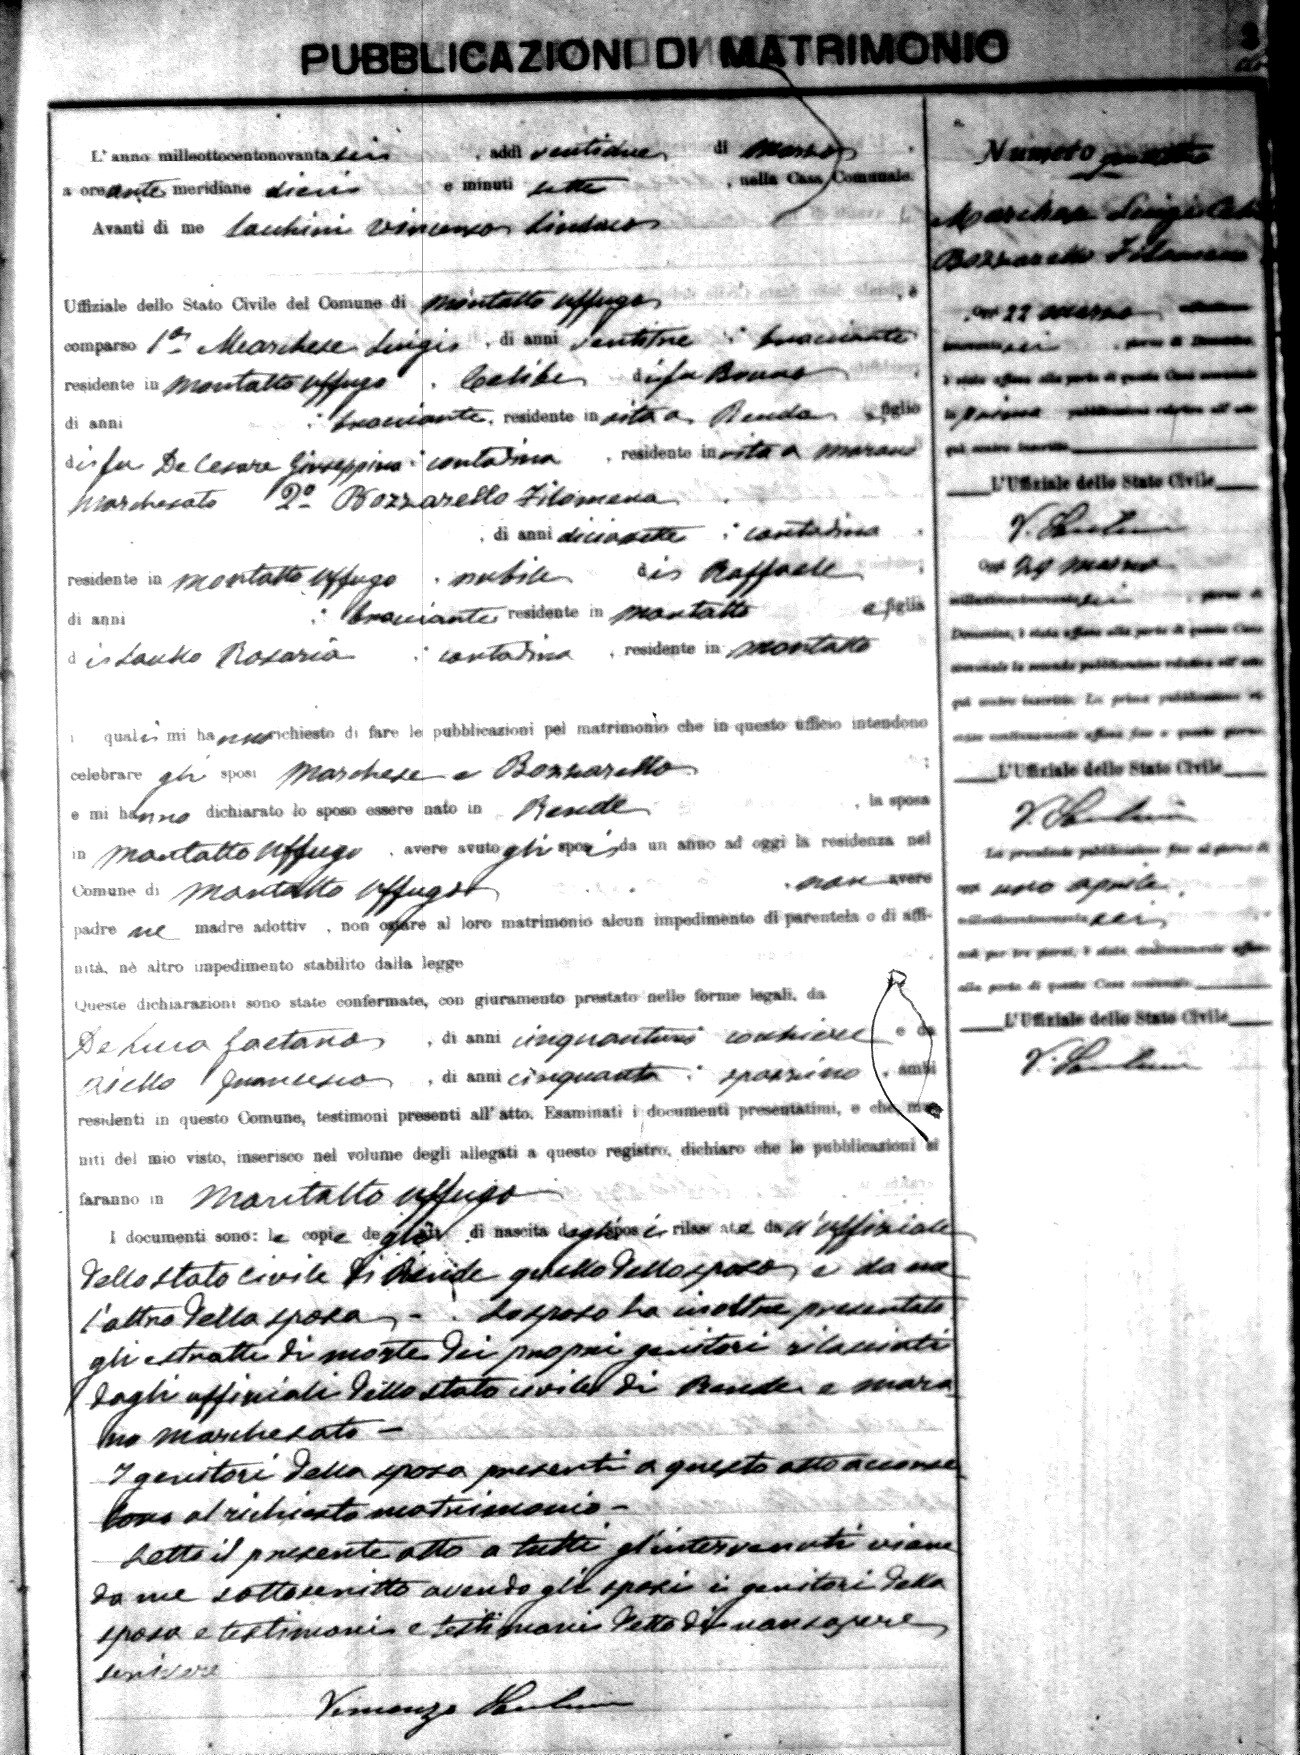 PUBBLICAZIONI DI MATRIMONIO
L'anno milleottocentonovantasei, addì ventidue di marzo
a ore ante meridiane dieci e minuti sette, nella Casa Comunale.
Avanti di me Vincenzo Sindaco
Uffiziale dello Stato Civile del Comune di Montalto Uffugo, è
comparso 1o Marchese Luigi, di anni ventitre; bracciante
residente in Montalto Uffugo. Celibe di fu Bruno
di anni ; bracciante, residente in vita a Rende, figlio
di fu De Cesare Giuseppina; contadina, residente in vita a Marano
Marchesato 2o Bozzarello Filomena
, di anni diciasette; contadina
residente in Montalto Uffugo, nubile di Raffaele
di anni ; bracciante residente in Montalto e figlia
di Rosaria; contadina, residente in Montalto
i quali mi hanno richiesto di fare le pubblicazioni pel matrimonio che in questo ufficio intendono
celebrare gli sposi Marchese e Bozzarello;
e mi hanno dichiarato lo sposo essere nato in Rende, la sposa
in Montalto Uffugo, avere avuto gli sposi da un anno ad oggi la residenza nel
Comune di Montalto Uffugo, non avere
padre ne madre adottiv , non ostare al loro matrimonio alcun impedimento di parentela o di affi-
nità, nè altro impedimento stabilito dalla legge
Queste dichiarazioni sono state confermate, con giuramento prestato nelle forme legali, da
De Luca Gaetano, di anni e da
Aiello Francesco, di anni cinquanta; spazzino, ambi
residenti in questo Comune, testimoni presenti all'atto. Esaminati i documenti presentatimi, e che, mu-
niti del mio visto, inserisco nel volume degli allegati a questo registro, dichiaro che le pubblicazioni si
faranno in Montalto Uffugo
I documenti sono: le copie degli atti di nascita degli sposi rilasciate da l'uffiziale
dello stato civile di Rende quello dello sposo, e da me
l'altro della sposa - Lo sposo ha inoltre presentato
gli estratti di morte dei propri genitori rilasciati
dagli uffiziali dello stato civile di Rende e Mara
no Marchesato -
I genitori della sposa presenti a questo atto acconse
al richiesto matrimonio -
Letto il presente atto a tutti gl'intervenuti viene
da me sottoscritto avendo gli sposi i genitori della
sposa e testimoni e testimoni detto di non sapere
scrivere
Vincenzo
Numero
Marchese Luigi
Bozzarello Filomena
Oggi 22 marzo
sei, giorno di Domenica,
è stata affissa alla porta di questa Casa comunale
la prima pubblicazione relativa all'atto
qui contro inscritto
L'Uffiziale dello Stato Civile
V.
Oggi 29 marzo
millottocentonovantasei, giorno di
Domenica, è stata affissa alla porta di questa Casa
comunale la seconda pubblicazione relativa all'atto
qui contro inscritto. La prima pubblicazione ri-
mase continuamente affissa fino a questo giorno.
L'Uffiziale dello Stato Civile
V.
La precedente pubblicazione fino al giorno di
oggi uno aprile,
millottocentonovantasei,
cioè per tre giorni, è stata continuamente affissa
alla porta di questa Casa comunale.
L'Uffiziale dello Stato Civile
V.